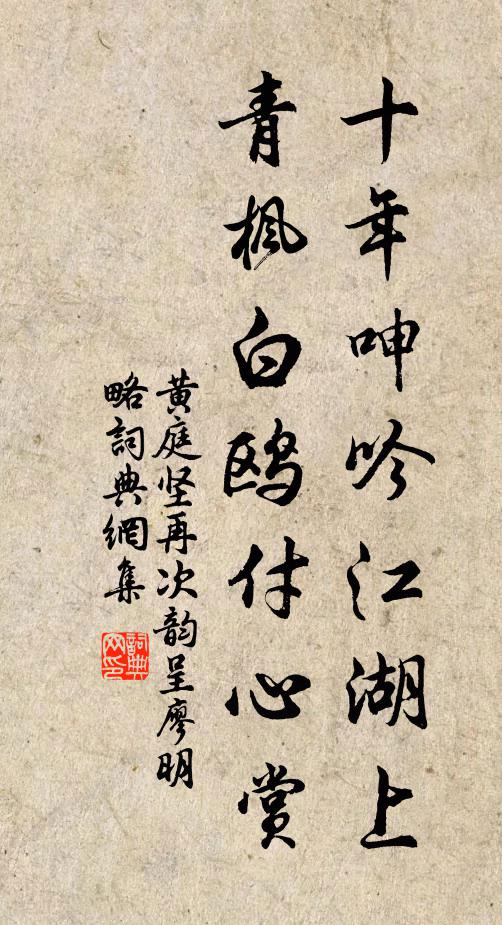 十年呻吟江湖上
青枫白鸥付心赏
黄庭坚再次韵呈廖明
略詞典網集
詞典
网印